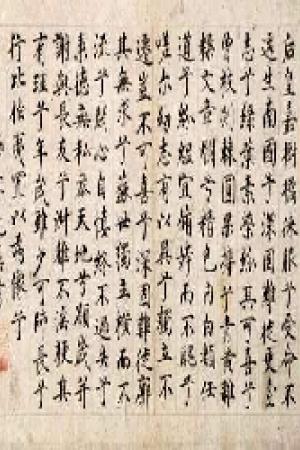 后皇嘉樹橘徠服兮受命不
遷生南國兮深固難徙更壹
志兮綠葉素榮紛其可喜兮
曾枝剡棘圓果摶兮青黃雜
糅文章爛兮精色內白類任
道兮紛緼宜脩姱而不醜兮
嗟爾幼志有以異兮獨立不
遷豈不可喜兮深固難徙廓
其無求兮蘇世獨立橫而不
流兮閉心自慎終不過失兮
秉德無私參天地兮願歲并
謝與長友兮淑離不淫梗其
有理兮年歲雖少可師長兮
行比伯夷置以為像兮